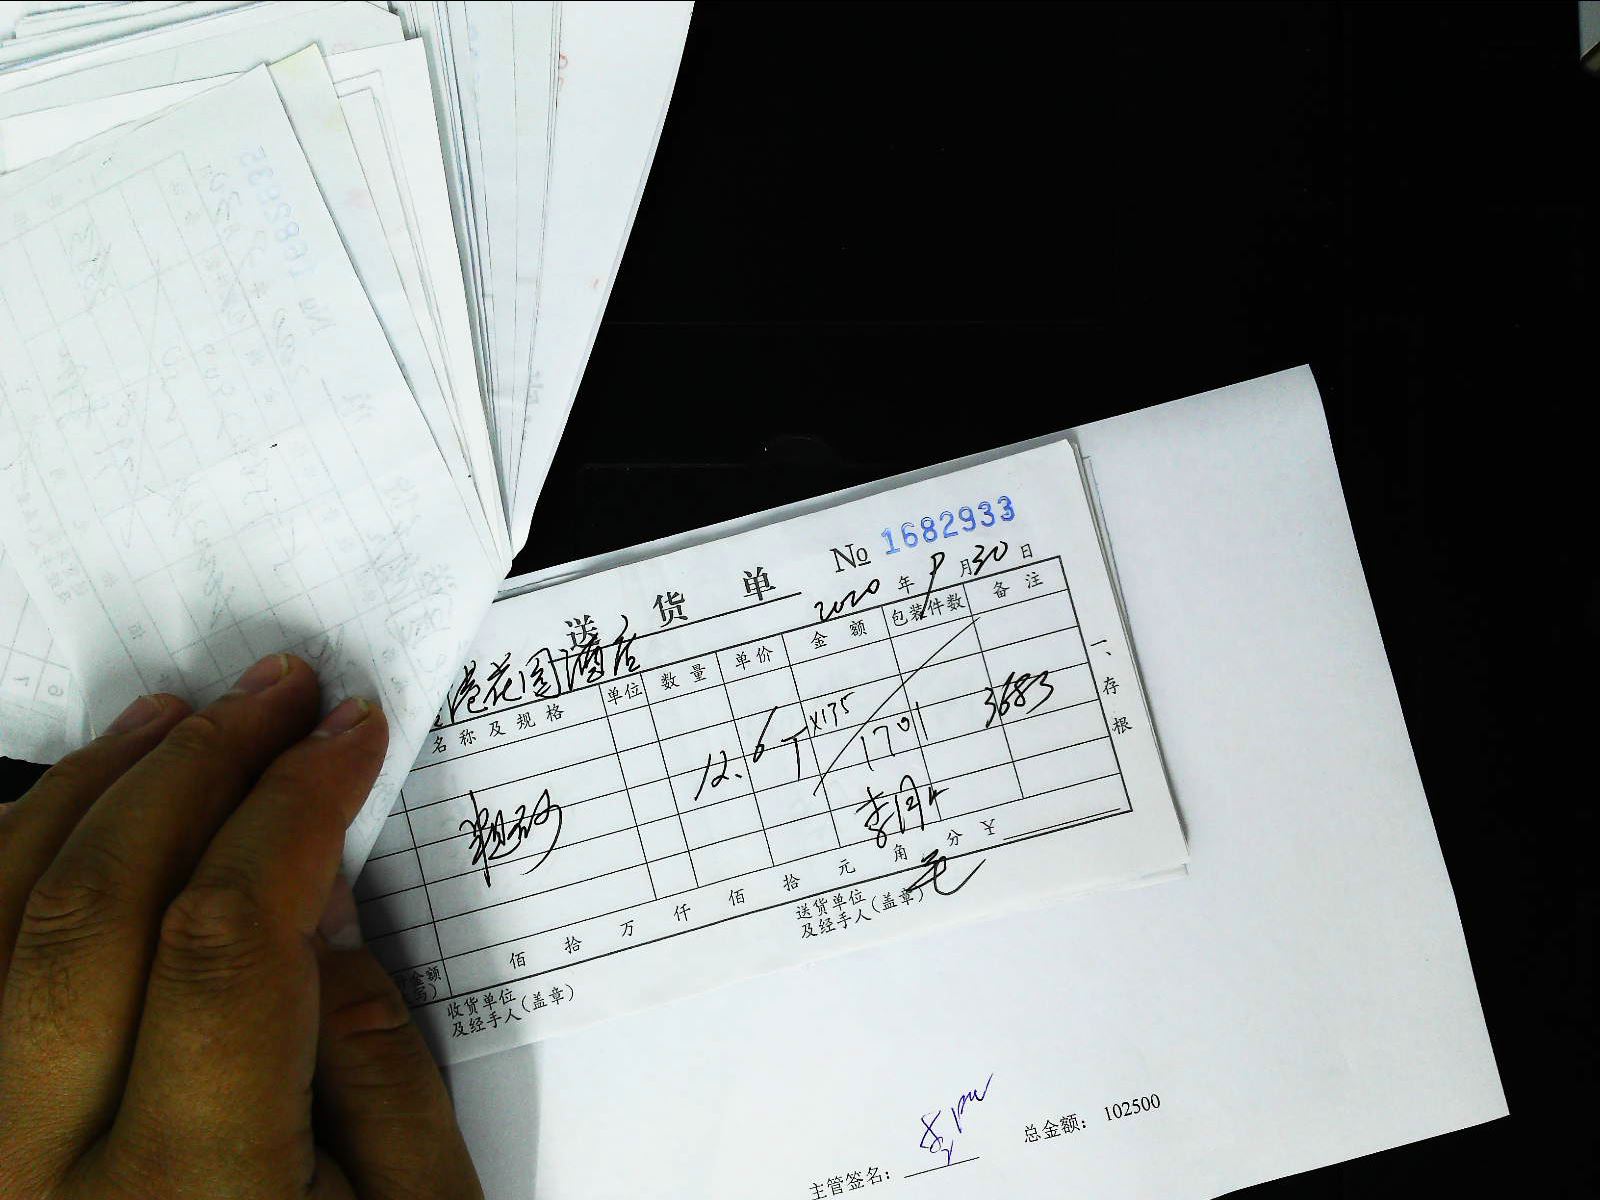 送货单 № 1682933
2020年9月30日
港花园酒店
名称及规格 单位 数量 单价 金额 包装件数 备注
粗砂 12.6T ×135 1701 3683
佰 拾 万 仟 佰 拾 元 角 分 ¥
收货单位
及经手人(盖章)
送货单位
及经手人(盖章)
一、存根
主管签名: 总金额: 102500